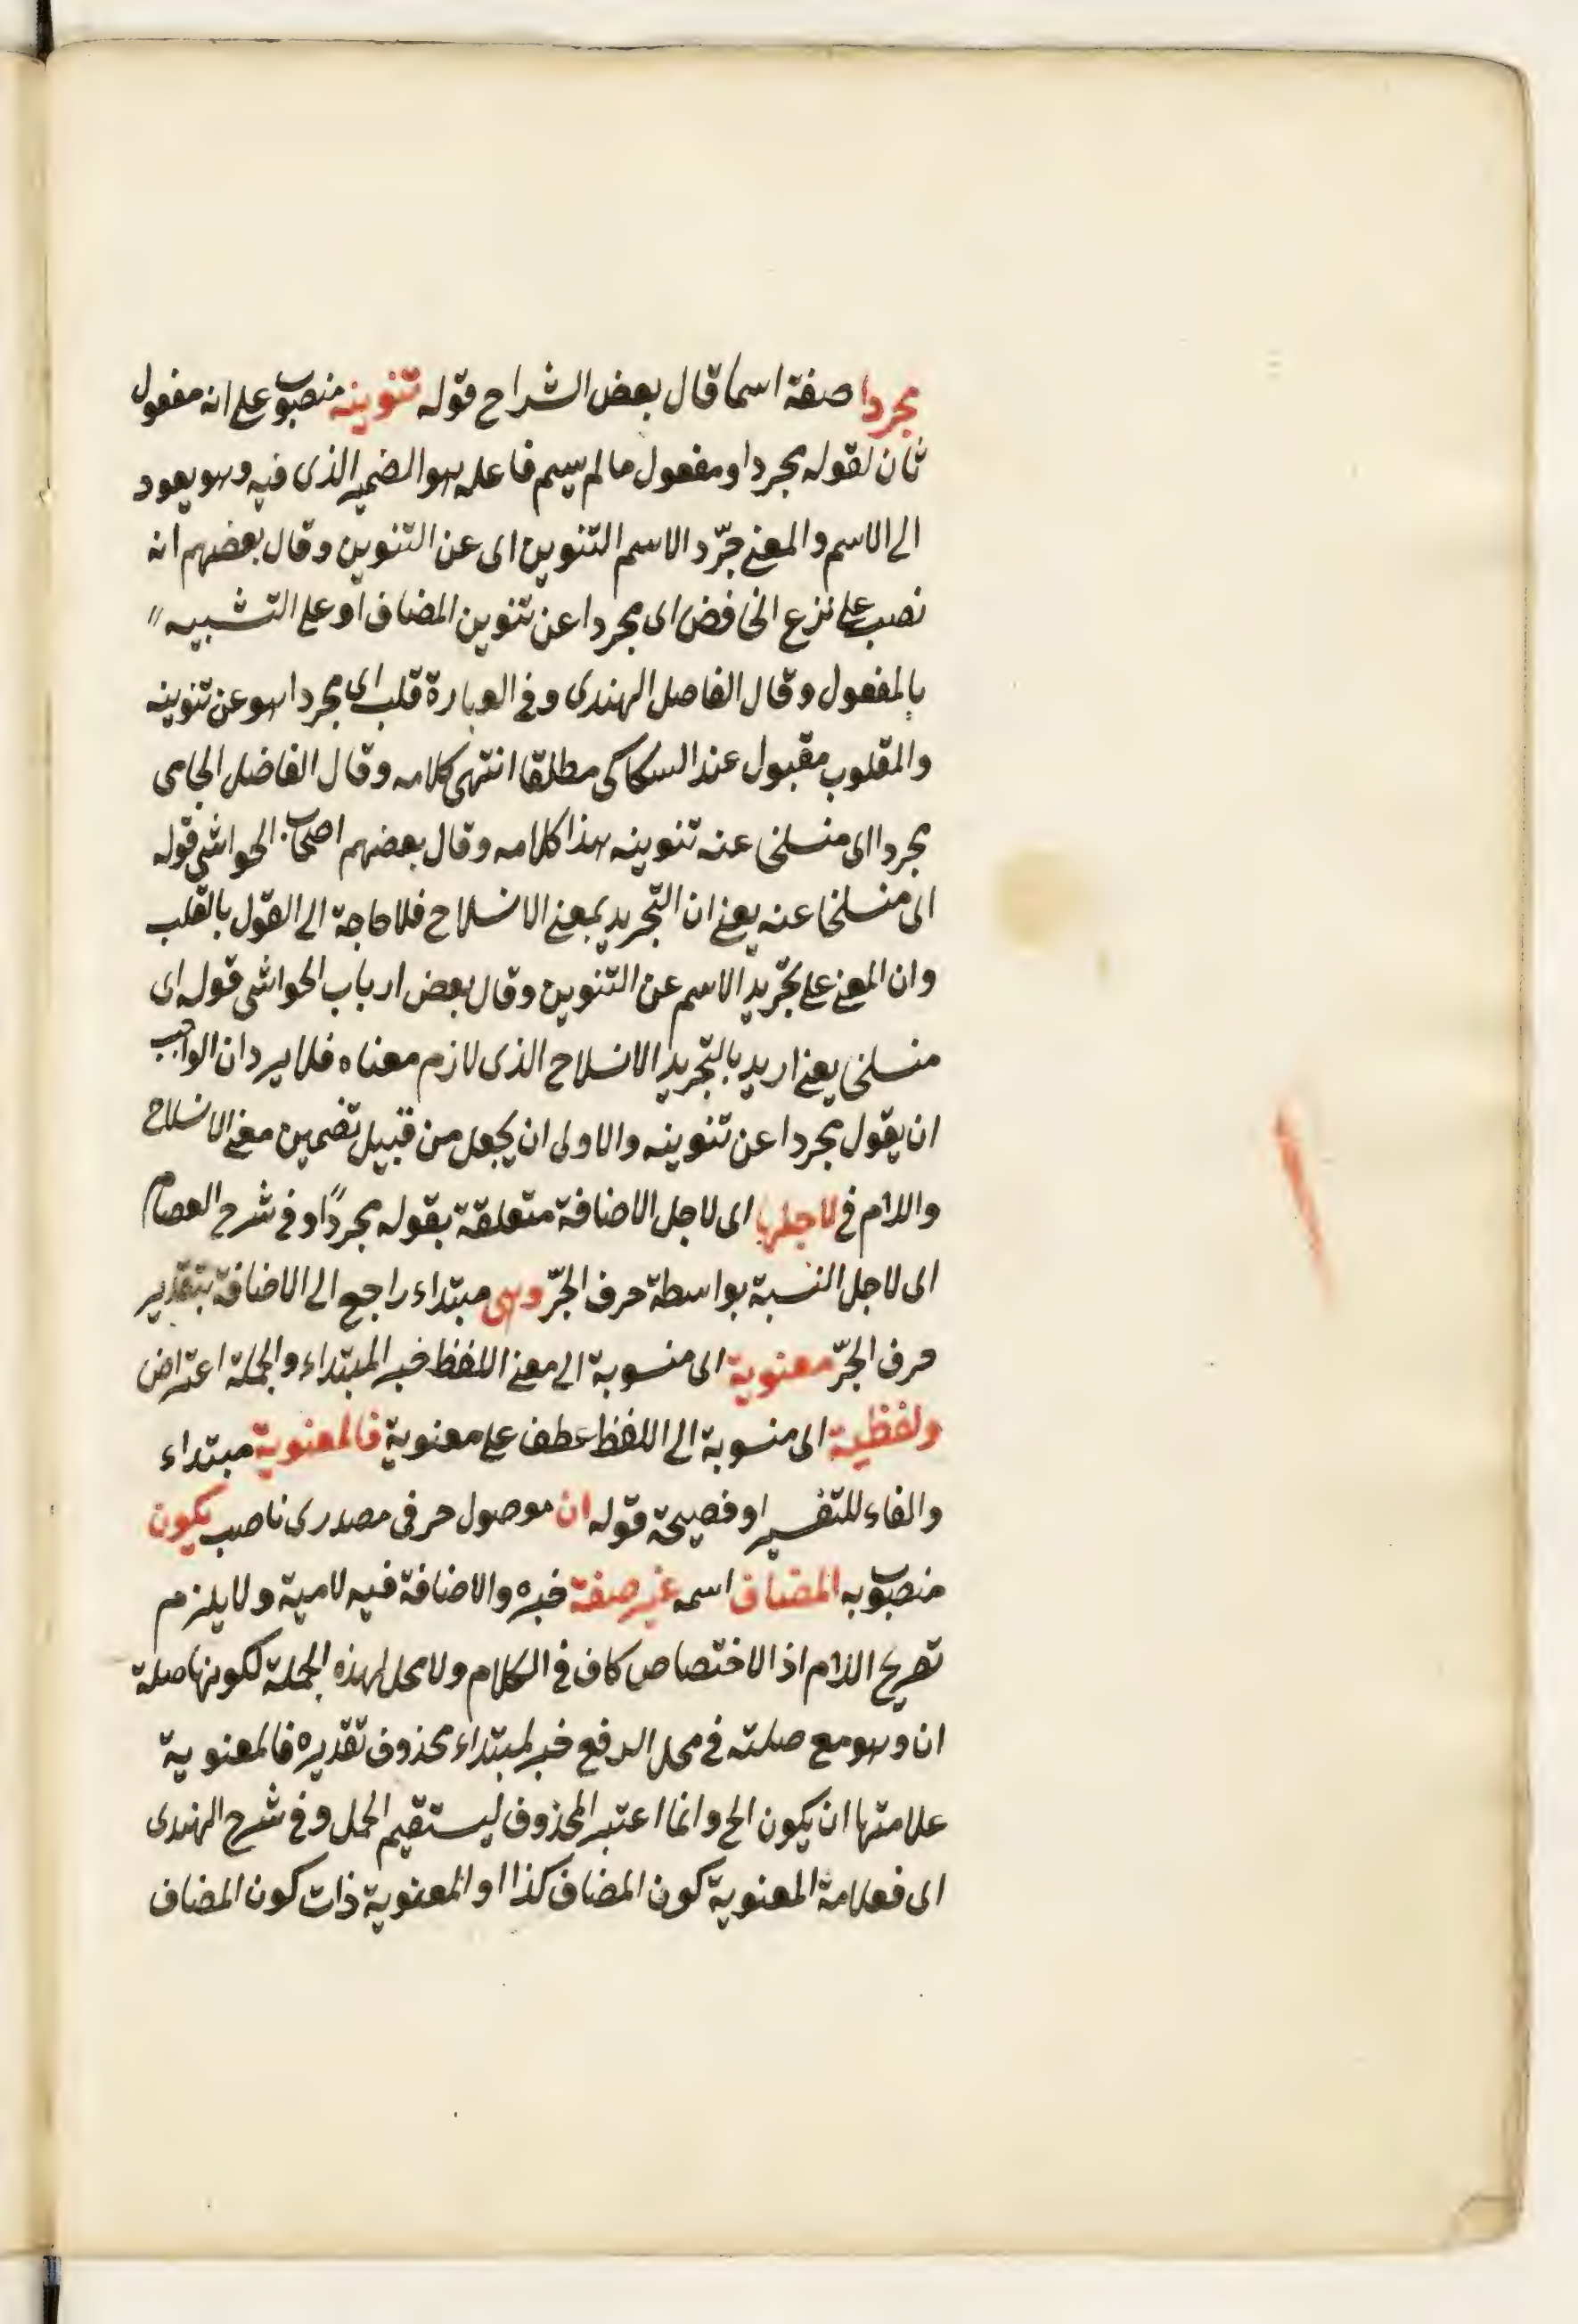 مجردا صفة اسما قال بعض الشراح قوله تنوينه منصوب على انه مفعول
ثان لقوله مجردا ومفعول مالم يسم فاعله هو الضمير الذى فيه وهو يعود
الى الاسم والمعنى جرّد الاسم التنوين اى عن التنوين وقال بعضهم انه
نصب على نزع الخافض اى مجردا عن تنوين المضاف او على التشبيه
بالمفعول وقال الفاصل الهندى وفى العبارة قلب اى مجردا هو عن تنوينه
والمقلوب مقبول عند السكاكى مطلقا انتهى كلامه وقال الفاضل الجامى
مجردا اى منسلخا عنه تنوينه هذا كلامه وقال بعضهم اصحاب الحواشى قوله
اى منسلخا عنه يعنى ان التجريد بمعنى الانسلاخ فلا حاجة الى القول بالقلب
وان المعنى على تجريد الاسم عن التنوين وقال بعض ارباب الحواشى قوله اى
منسلخا يعنى اريد بالتجريد الانسلاخ الذى لازم معناه فلا يرد ان الواجب
ان يقول مجردا عن تنوينه والاولى ان يجعل من قبيل تضمين معنى الانسلاخ
واللام فى لاجلها اى لاجل الاضافة متعلقة بقوله مجردًا وفى شرح العصام
اى لاجل النسبة بواسطة حرف الجرّ وهى مبتداء راجع الى الاضافة بتقدير
حرف الجرّ معنوية اى منسوبة الى معنى اللفظ خبر المبتداء والجملة اعتراض
ولفظية اى منسوبة الى اللفظ عطف على معنوية فالمعنوية مبتداء
والفاء للتفسير او فصيحة قوله ان موصول حرفى مصدرى ناصب يكون
منصوب به المضاف اسمه غير صفة خبره والاضافة فيه لامية ولا يلزم
تصريح اللام اذ الاختصاص كاف فى الكلام ولا محل لهذه الجملة لكونها صلة
ان وهو مع صلته فى محل الرفع خبر لمبتداء محذوف تقديره فالمعنوية
علامتها ان يكون الخ وانما اعتبر المحذوف ليستقيم الحمل وفى شرح الهندى
اى فعلامة المعنوية كون المضاف كذا او المعنوية ذات كون المضاف